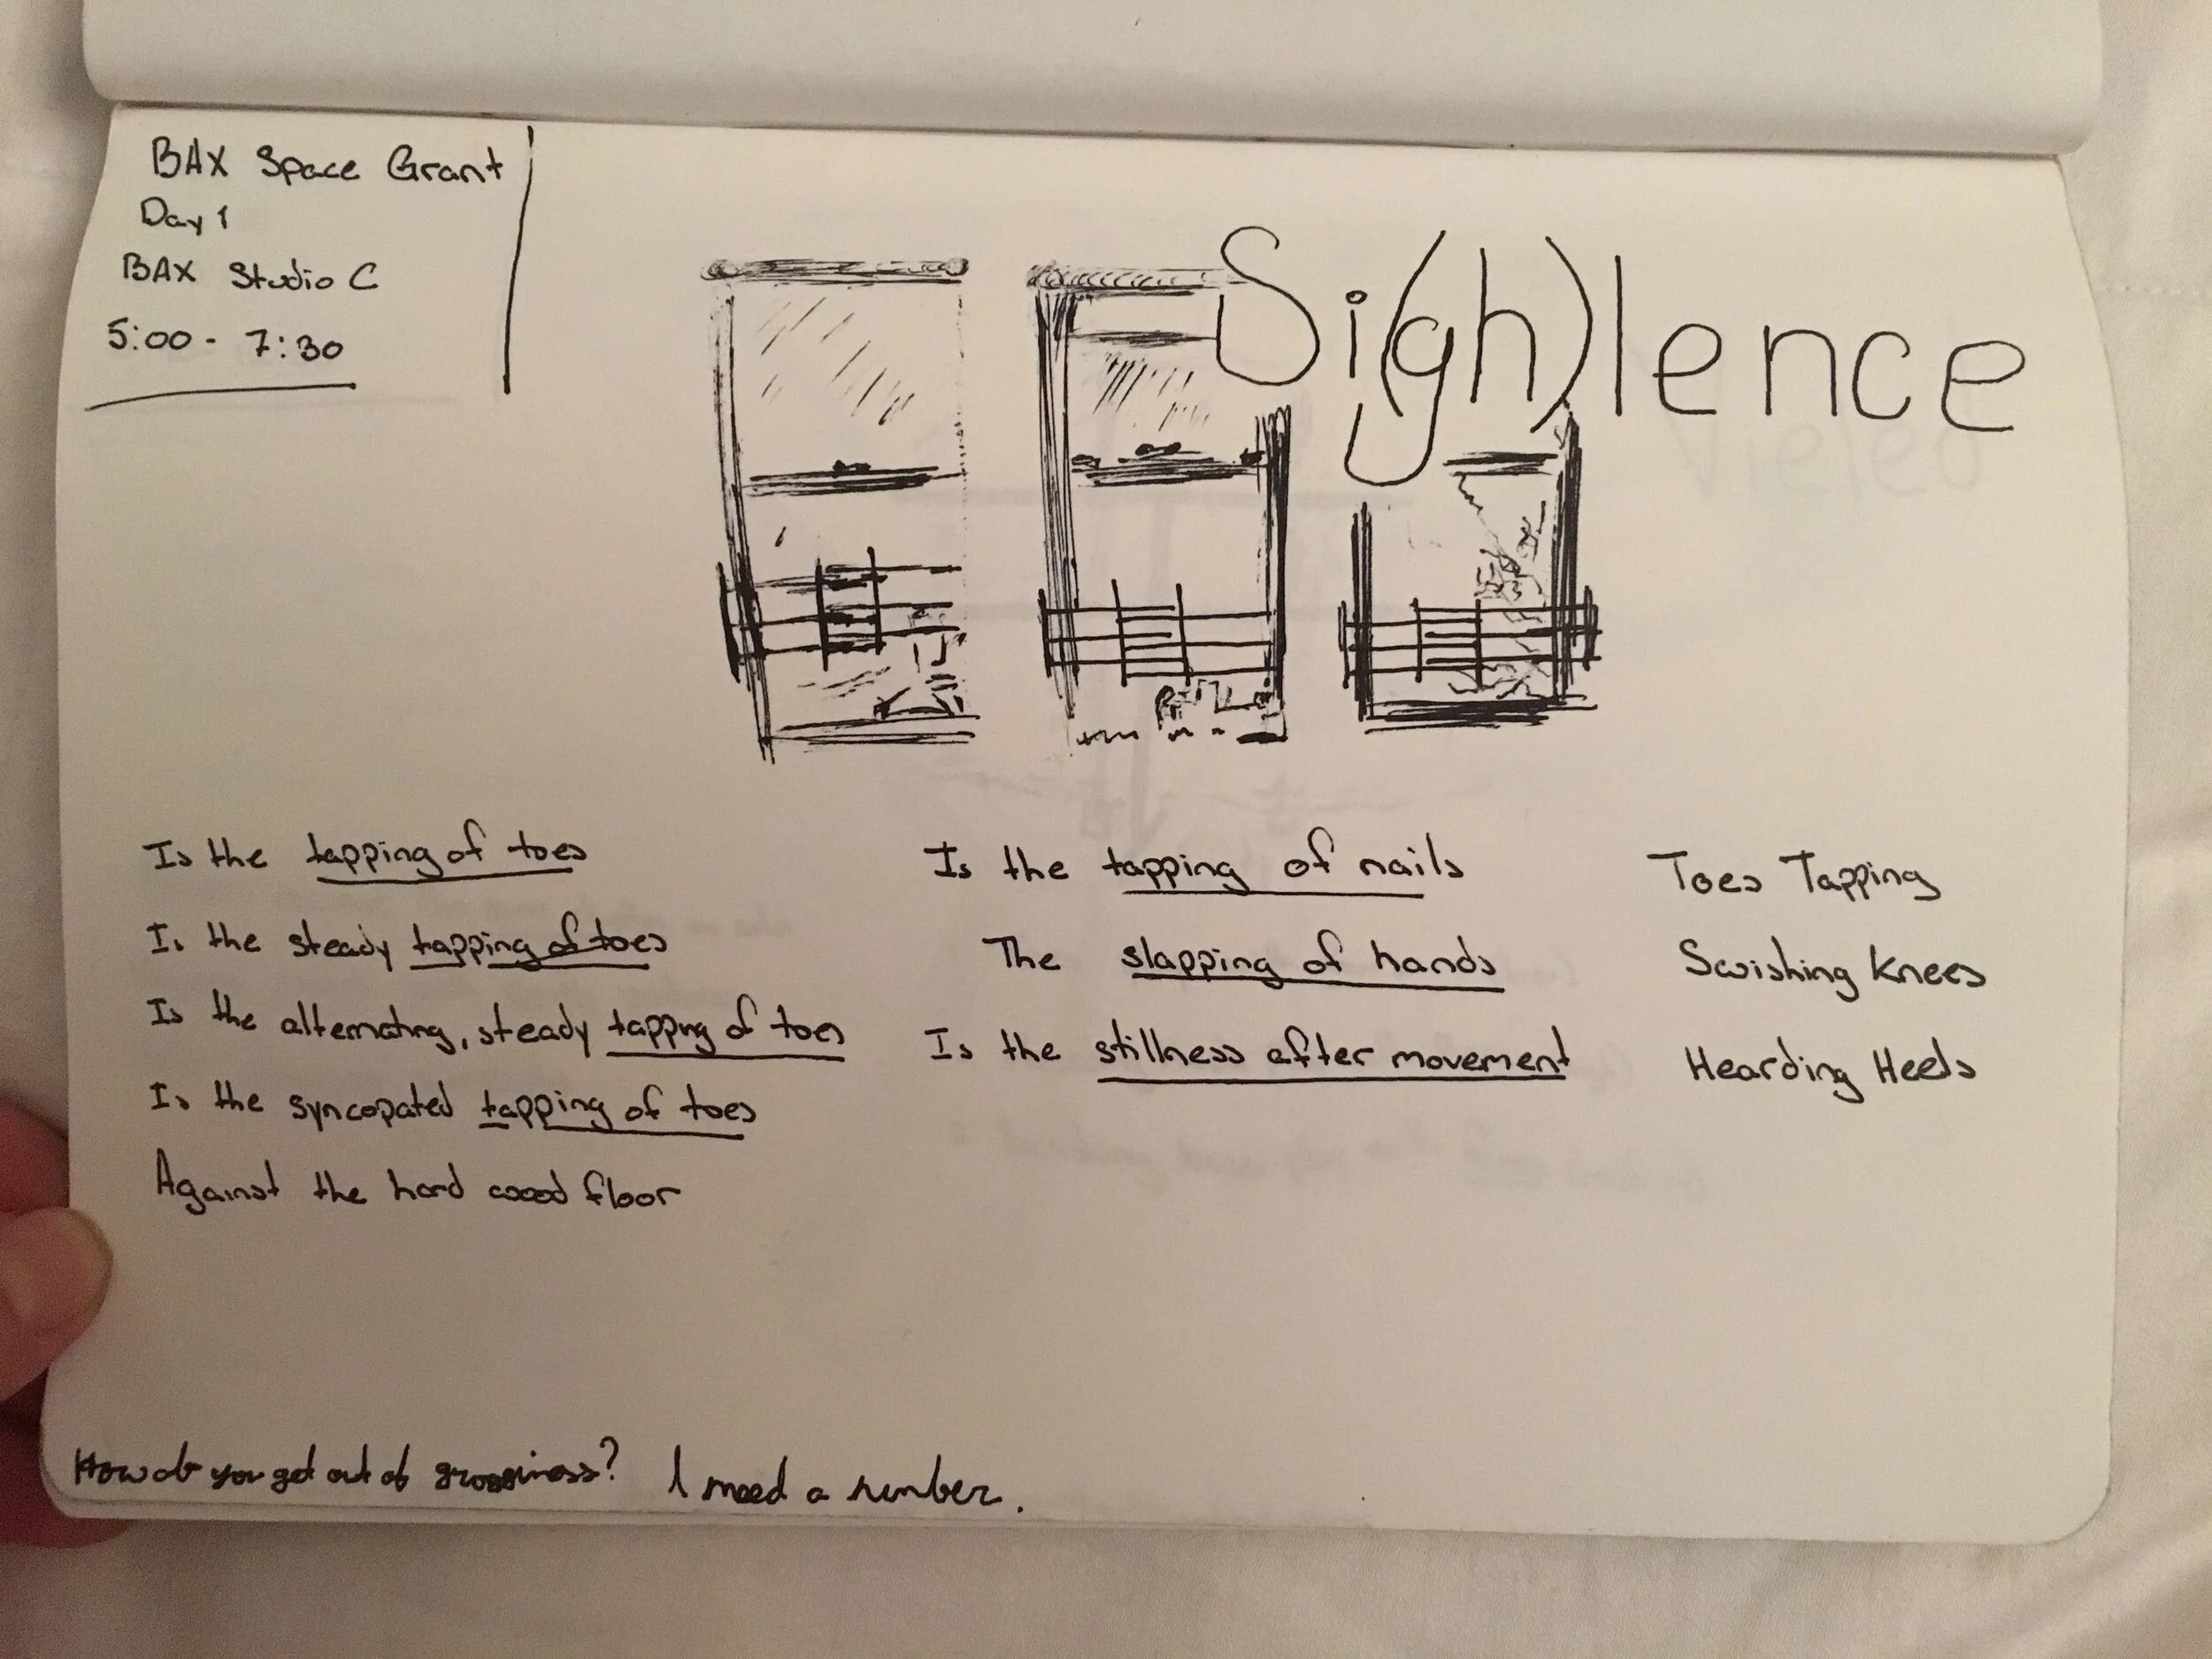 BAX Space Grant
Day 1
BAX Studio C
5:00 - 7:30
Si(gh)lence
Is the tapping of toes
Is the steady tapping of toes
Is the alternating, steady tapping of toes
Is the syncopated tapping of toes
Against the hard wood floor
Is the tapping of nails
The slapping of hands
Is the stillness after movement
Toes Tapping
Swishing Knees
Hearding Heels
How do you get out of grogginess? I need a number.